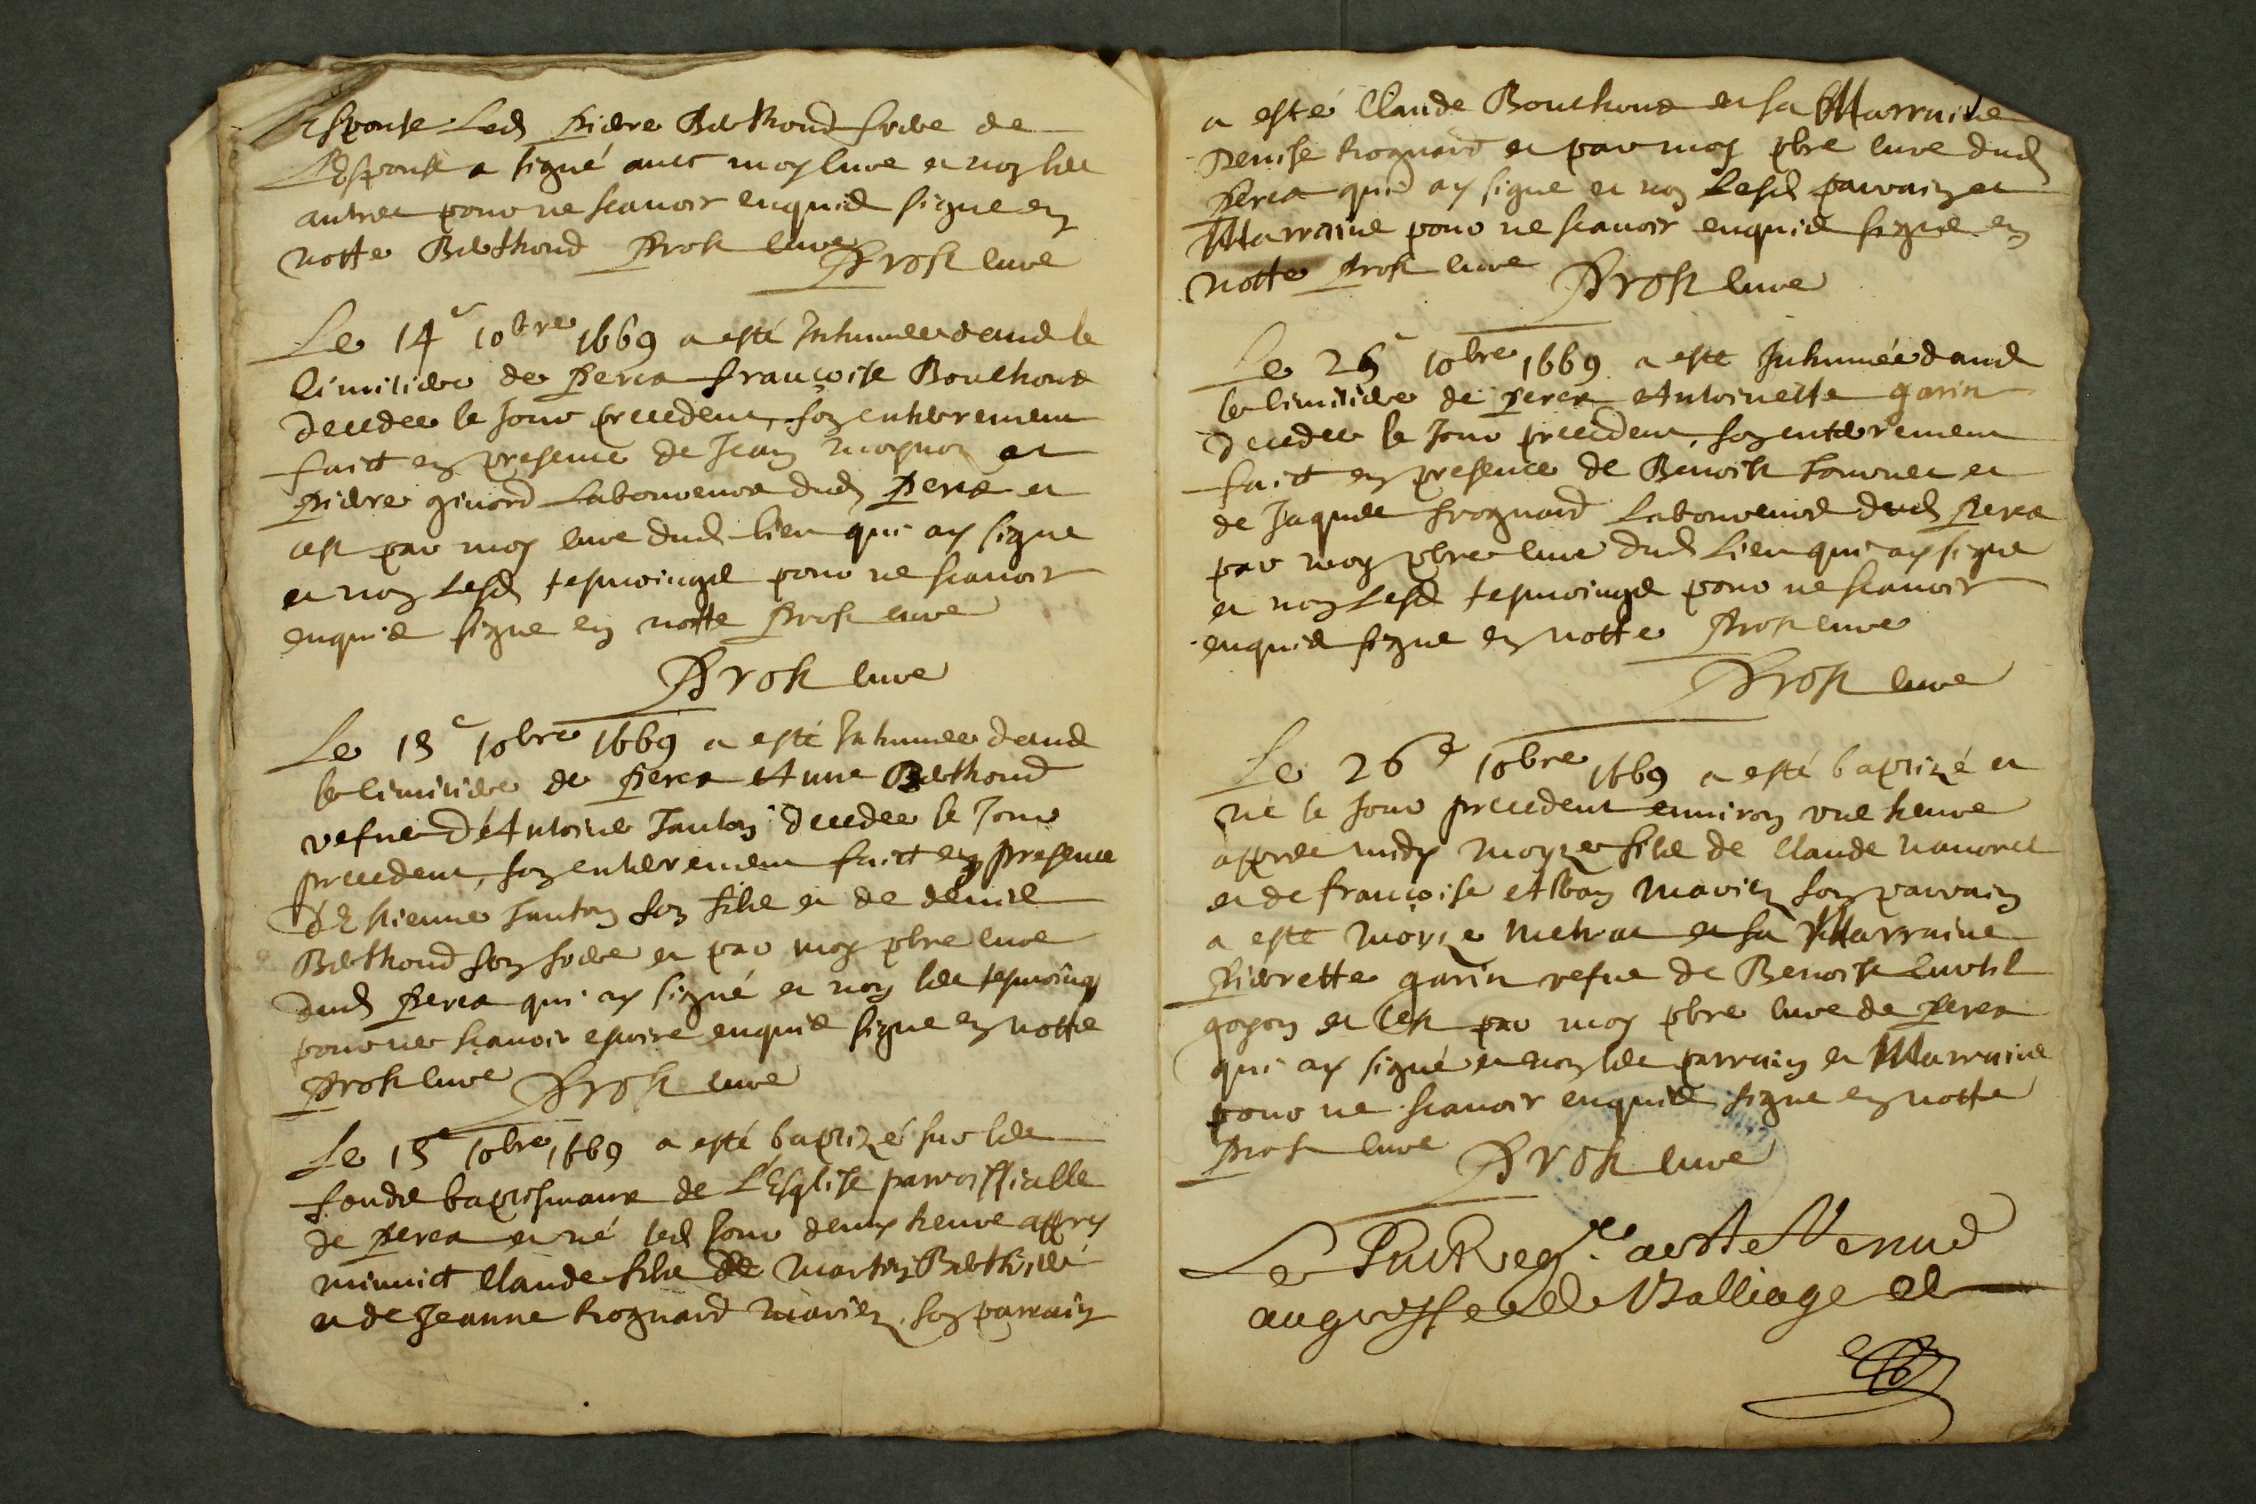 Espouse Led Pierre Berthoud frere de
L'Espouse a signé avec moy Cure et non les
autres pour ne scavoir enquis signe en
notte Berthoud Prost Cure
Prost Cure
Le 14e 10bre 1669 a esté Inhumee dans le
Cimitiere de Perca françoise Bouchons
decedee le Jour precedent, son enterrement
faict en presence de Jean moynon et
Pierre girord Laboureurs dud Perca et
cest par moy cure dud lieu qui ay signe
et non Lesd tesmoings pour ne scavoir
enquis signe en notte Prost cure
Prost Cure
Le 15e 10bre 1669 a esté Inhumee dans
le Cimitiere de Perca Anne Berthoud
vefue d'Antoine decedee le Jour
precedent, son enterrement faict en presence
d'Estienne son filz et de denis
Berthoud son frere et par moy pbre Cure
dud Perca qui ay signé et non les tesmoings
pour ne scavoir escrire enquis signe en notte
Prost Cure Prost Cure
Le 15e 10bre 1669 a esté baptizé sur les
fonds baptismaux de L'Esglise parroissialle
de Perca et né led Jour demy heure appres
minuict Claude filz de Martin
et de Jeanne Rognard Mariez, son parrain
a esté Claude Bouchons et sa Marraine
Denise Rognard et par moy pbre Cure dud
Perca qui ay signe et non Lesd parrain et
Marraine pour ne scavoir enquis signe en
notte Prost Cure Prost Cure
Le 25e 10bre 1669 a este Inhumée dans
le Cimitiere de Perca Antoinette garin
decedee le Jour precedent, son enterrement
faict en presence de Benoist et
de Jaques frognard Laboureurs dud Perca
par moy pbre Cure dud Lieu qui ay signe
et non Lesd tesmoings pour ne scavoir
enquis signe en notte Prost Cure
Prost Cure
Le 26e 10bre 1669 a esté baptizé et
né le Jour precedent environ une heure
appres midy Moyze filz de Claude
et de françoise Alban Mariez son parrain
a este Moyze et sa Marraine
Pierrette garin vefue de Benoist
goyon et Cest par moy pbre Cure de Perca
qui ay signé et non les parrain et Marraine
pour ne scavoir enquis signe en notte
Prost Cure Prost Cure
Le
au greffe de Balliage